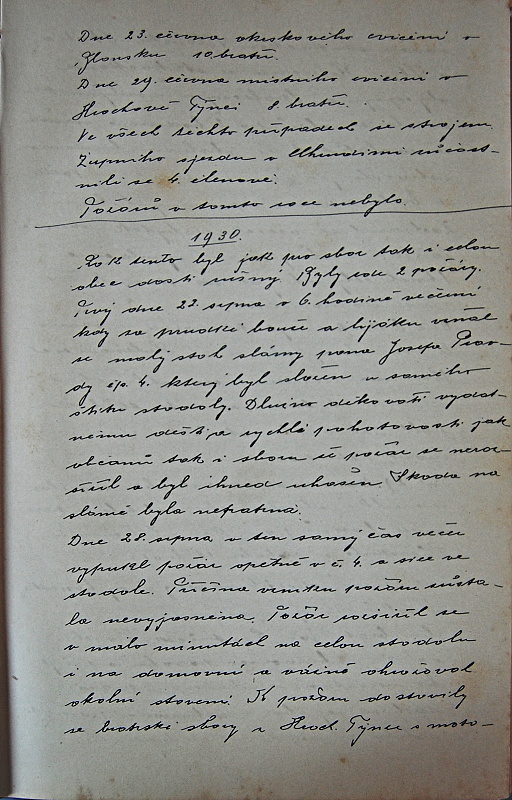 Dne 23. června okrskového cvičení v
Zlonsku 10. bratří.
Dne 29. června místního cvičení v
Hrochově Týnci 8 bratří.
Ve všech těchto případech se strojem.
Župního sjezdu v Chrudimi zúčast-
nili se 4. členové.
Požárů v tomto roce nebylo.
1930.
Rok tento byl jak pro sbor tak i celou
obec dosti rušný. Byly zde 2 požáry.
Prvý dne 22. srpna o 6. hodině večerní
kdy za prudké bouře a lijáku vzňal
se malý stoh slámy pana Josefa Prav-
dy čp. 4. který byl složen u samého
štítu stodoly. Dlužno děkovati vydat-
nému dešti a rychlé pohotovosti jak
občanů tak i sboru že požár se neroz-
šířil a byl ihned uhašen. Škoda na
slámě byla nepatrná.
Dne 28. srpna v ten samý čas večer
vypukl požár opětně v č. 4. a sice ve
stodole. Příčina vzniku požáru zůsta-
la nevyjasněna. Požár rozšířil se
v málo minutách na celou stodolu
i na domovní a vážně ohrožoval
okolní stavení. K požáru dostavily
se bratrské sbory z Hroch. Týnce s moto-